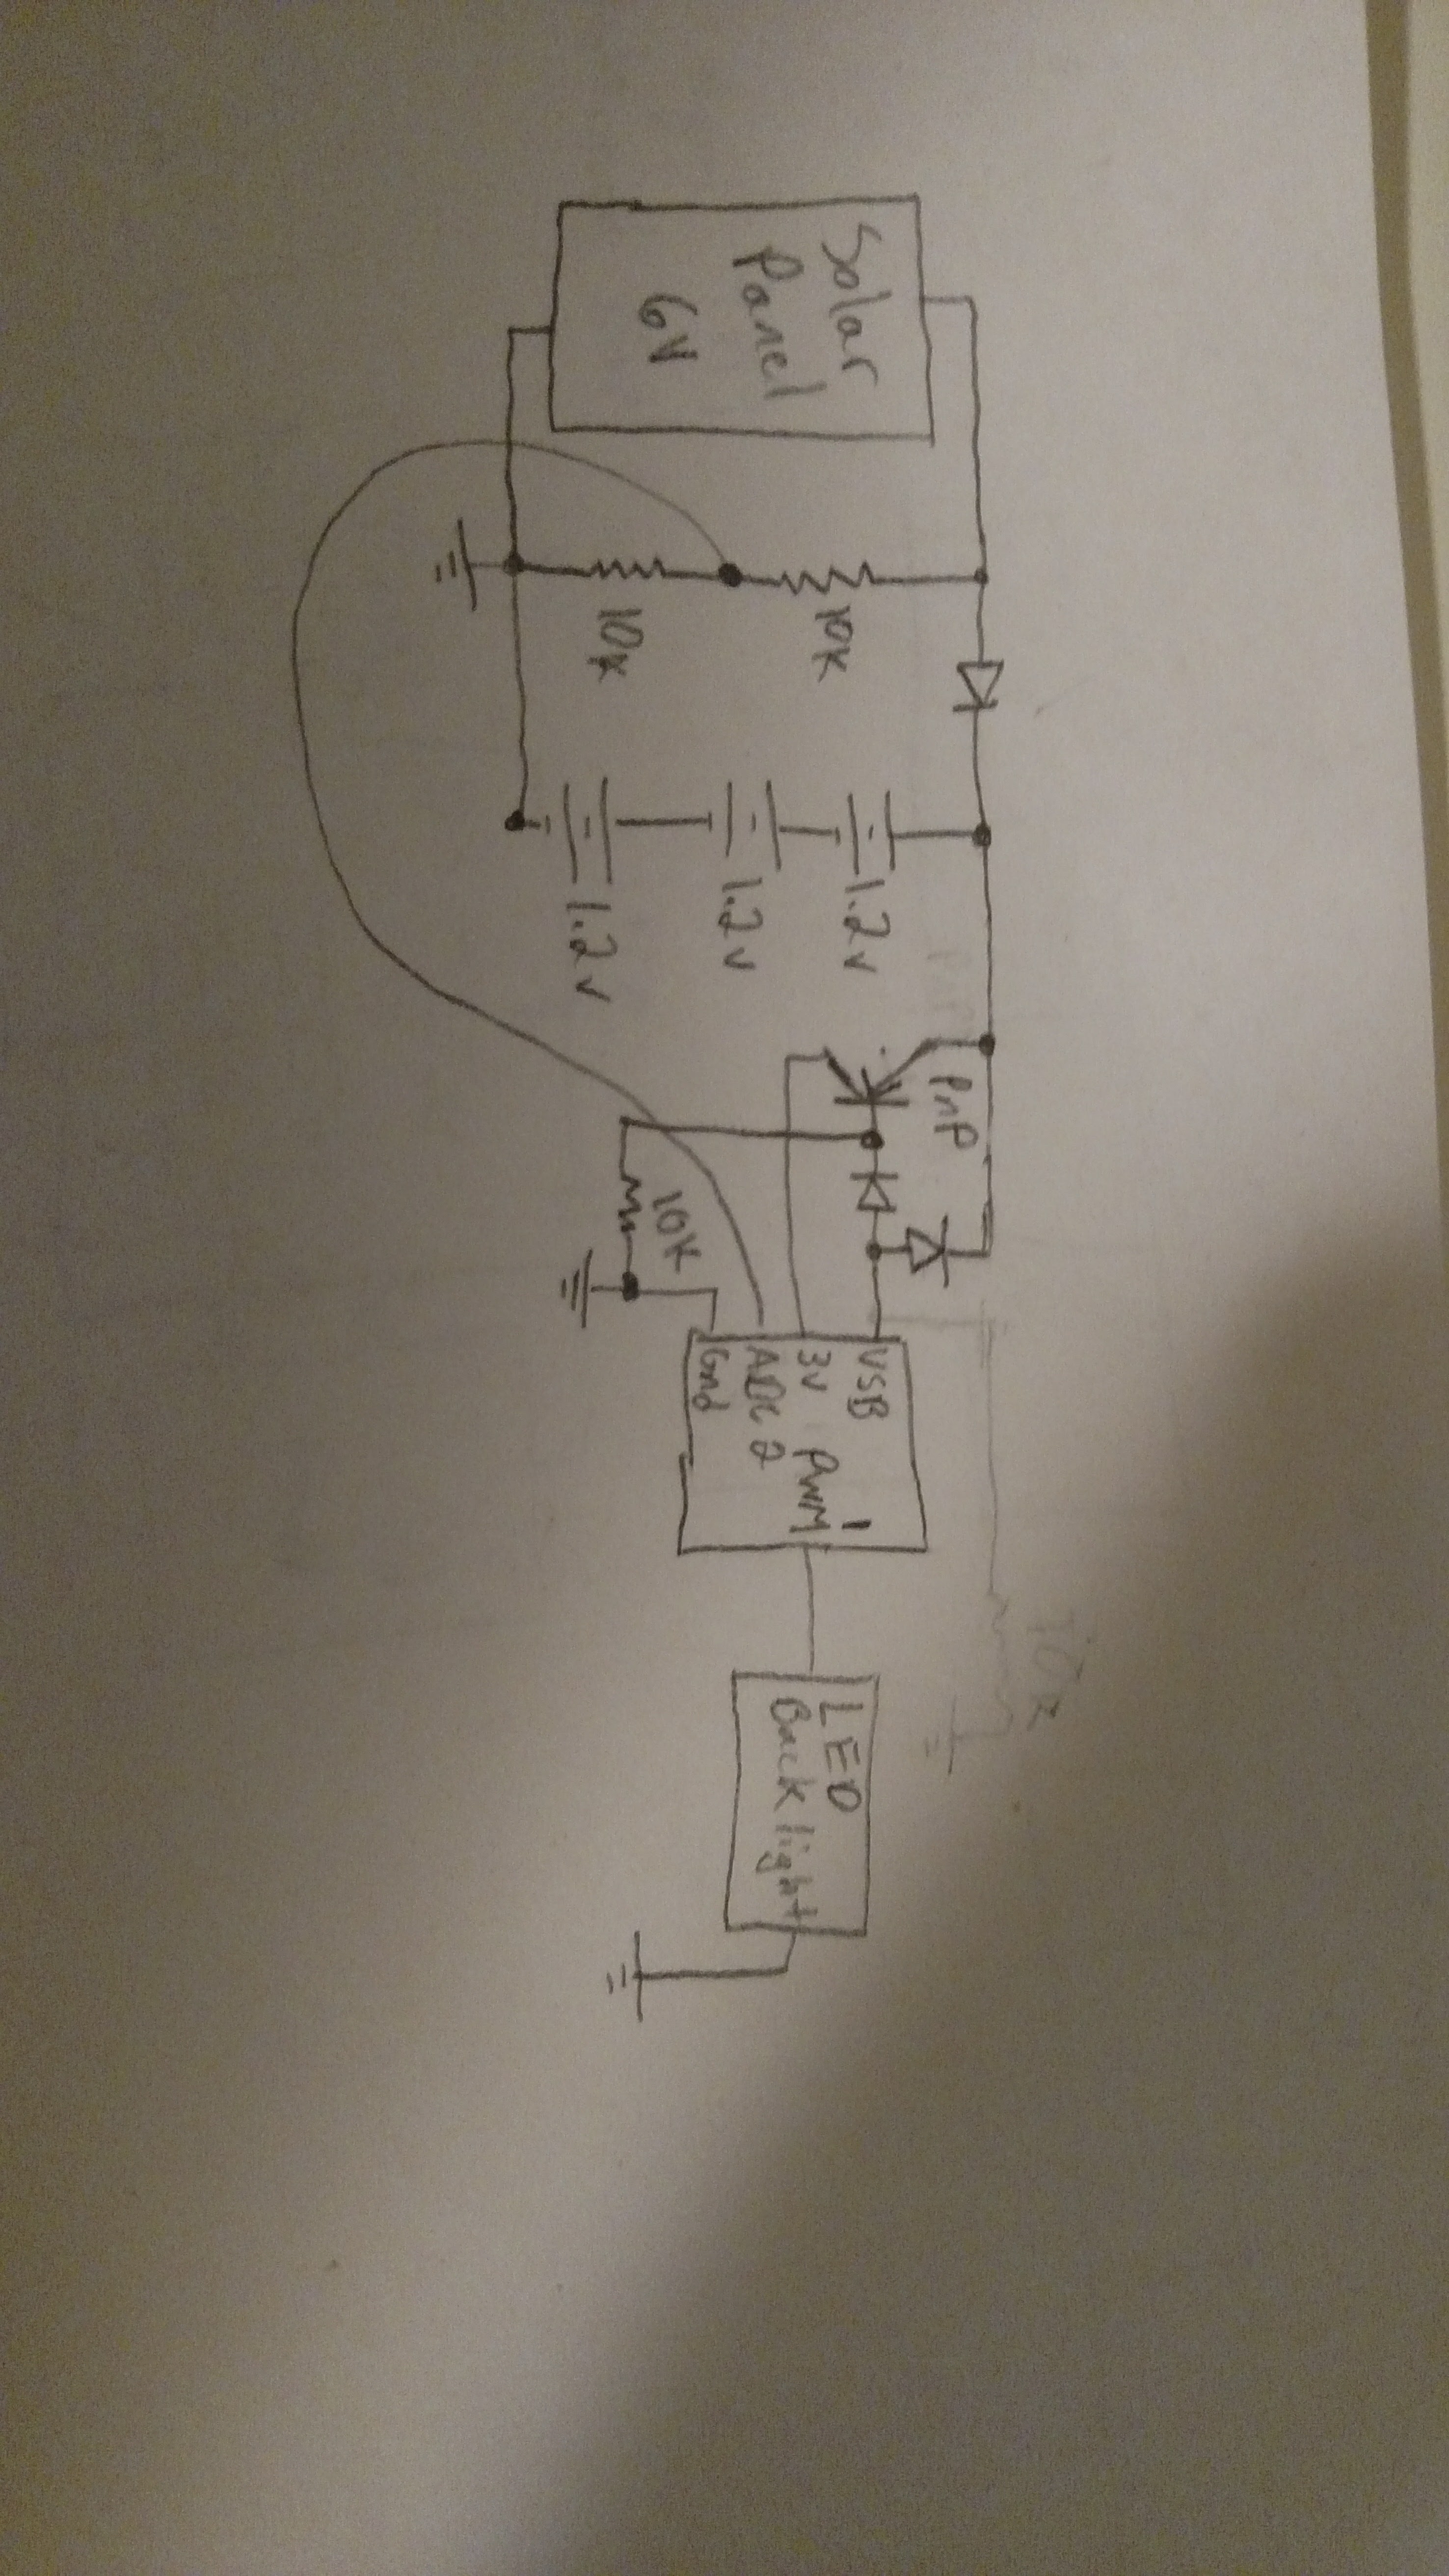 Solar
Panel
6V
10K
10K
1.2v
1.2v
1.2v
PnP
10K
USB
3V
ADC 2
Gnd
PWM 1
LED
Back light
10k